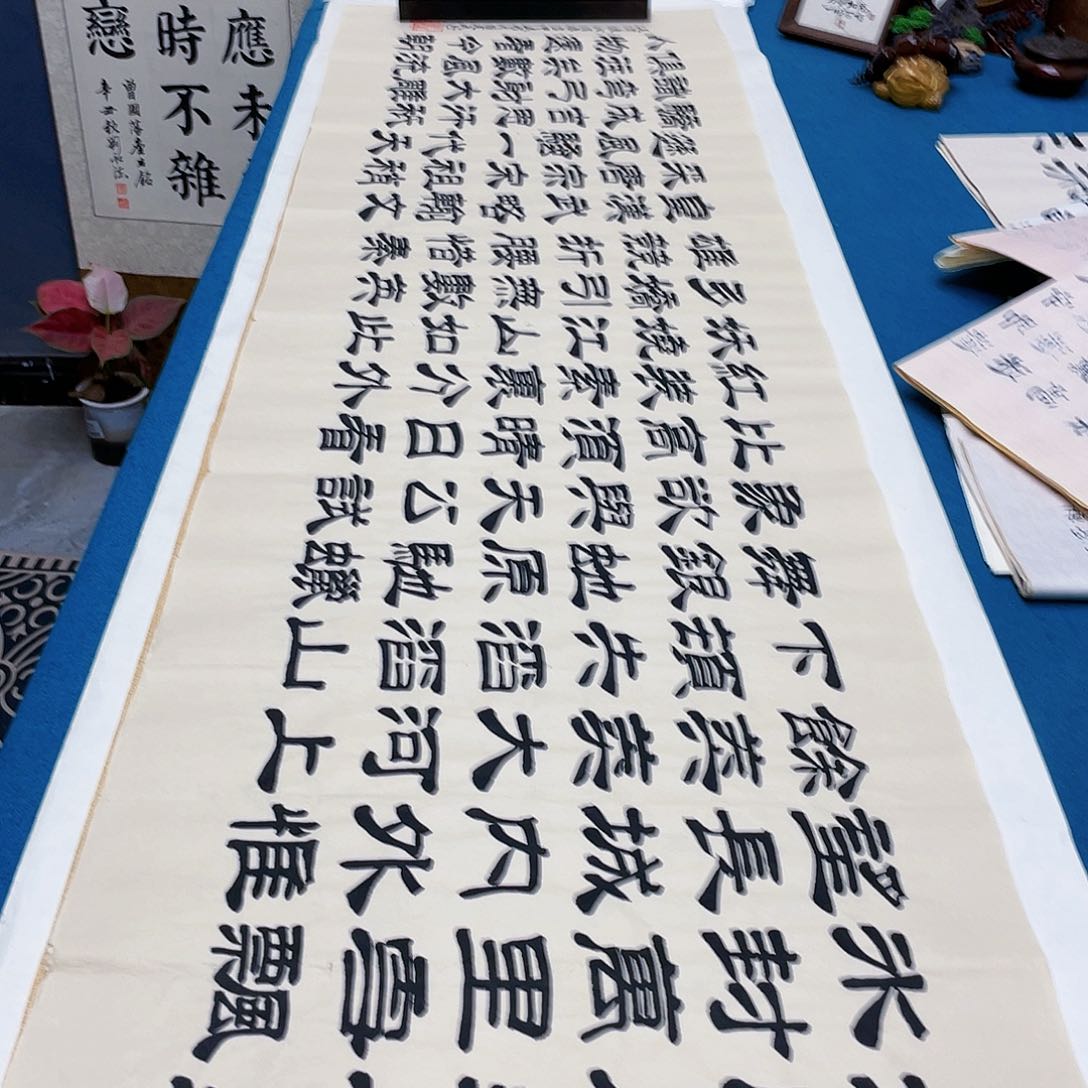 冰封萬里雪飄
望長城內外惟
餘莽莽大河上
下頓失滔滔山
舞銀蛇原馳蠟
象欲與天公試
比高須晴日看
紅裝素裹分外
妖嬈江山如此
多嬌引無數英
雄競折腰惜秦
皇漢武略輸文
采唐宗宋祖稍
遜風騷一代天
驕成吉思汗只
識彎弓射大雕
俱往矣數風流
人物還看今朝
應未
時不雜
戀
曾國藩座右銘
辛丑秋劉